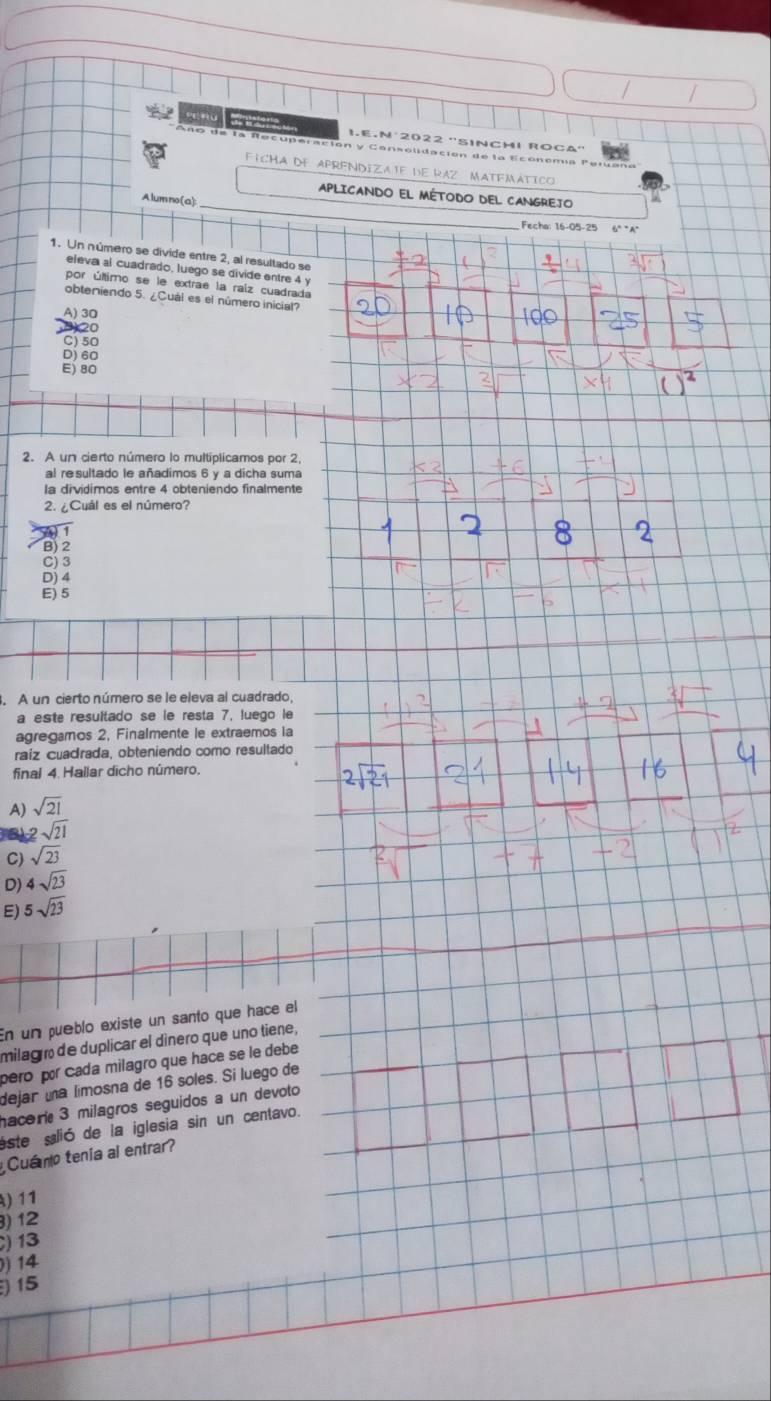 PERÚ Ministerio de Educación
I.E.N°2022 "SINCHI ROCA"
"Año de la Recuperación y Consolidación de la Economía Peruana"
FICHA DE APRENDIZAJE DE RAZ MATEMÁTICO
APLICANDO EL MÉTODO DEL CANGREJO
Alumno(a):
Fecha: 16-05-25 6° "A"
1. Un número se divide entre 2, al resultado se
eleva al cuadrado, luego se divide entre 4 y
por último se le extrae la raíz cuadrada
obteniendo 5. ¿Cuál es el número inicial?
A) 30
B) 20
C) 50
D) 60
E) 80
÷2 ( )² ÷4 ²√( )
20 10 100 25 5
×2 ²√ ×4 ( )²
2. A un cierto número lo multiplicamos por 2,
al resultado le añadimos 6 y a dicha suma
la dividimos entre 4 obteniendo finalmente
2. ¿Cuál es el número?
A) 1
B) 2
C) 3
D) 4
E) 5
×2 +6 ÷4
1 2 8 2
÷2 -6 ×4
3. A un cierto número se le eleva al cuadrado,
a este resultado se le resta 7, luego le
agregamos 2, Finalmente le extraemos la
raíz cuadrada, obteniendo como resultado
final 4. Hallar dicho número.
A) √21
B) 2√21
C) √23
D) 4√23
E) 5√23
( )² -7 +2 ²√
2√21 21 14 16 4
²√ +7 -2 ( )²
En un pueblo existe un santo que hace el
milagro de duplicar el dinero que uno tiene,
pero por cada milagro que hace se le debe
dejar una limosna de 16 soles. Si luego de
hacerle 3 milagros seguidos a un devoto
éste salió de la iglesia sin un centavo.
¿Cuánto tenía al entrar?
A) 11
B) 12
C) 13
D) 14
E) 15